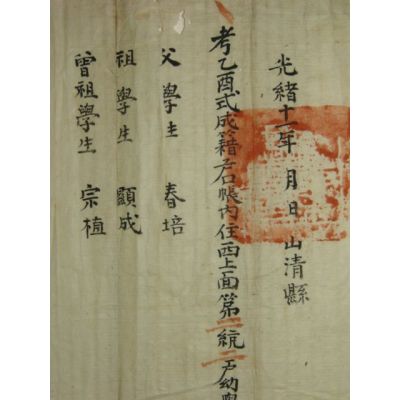 光緖十一年 月 日 山清縣
考乙酉式成籍戶口帳內住西上面第二統二戶幼學
父 學生 春培
祖 學生 顯成
曾祖學生 宗植